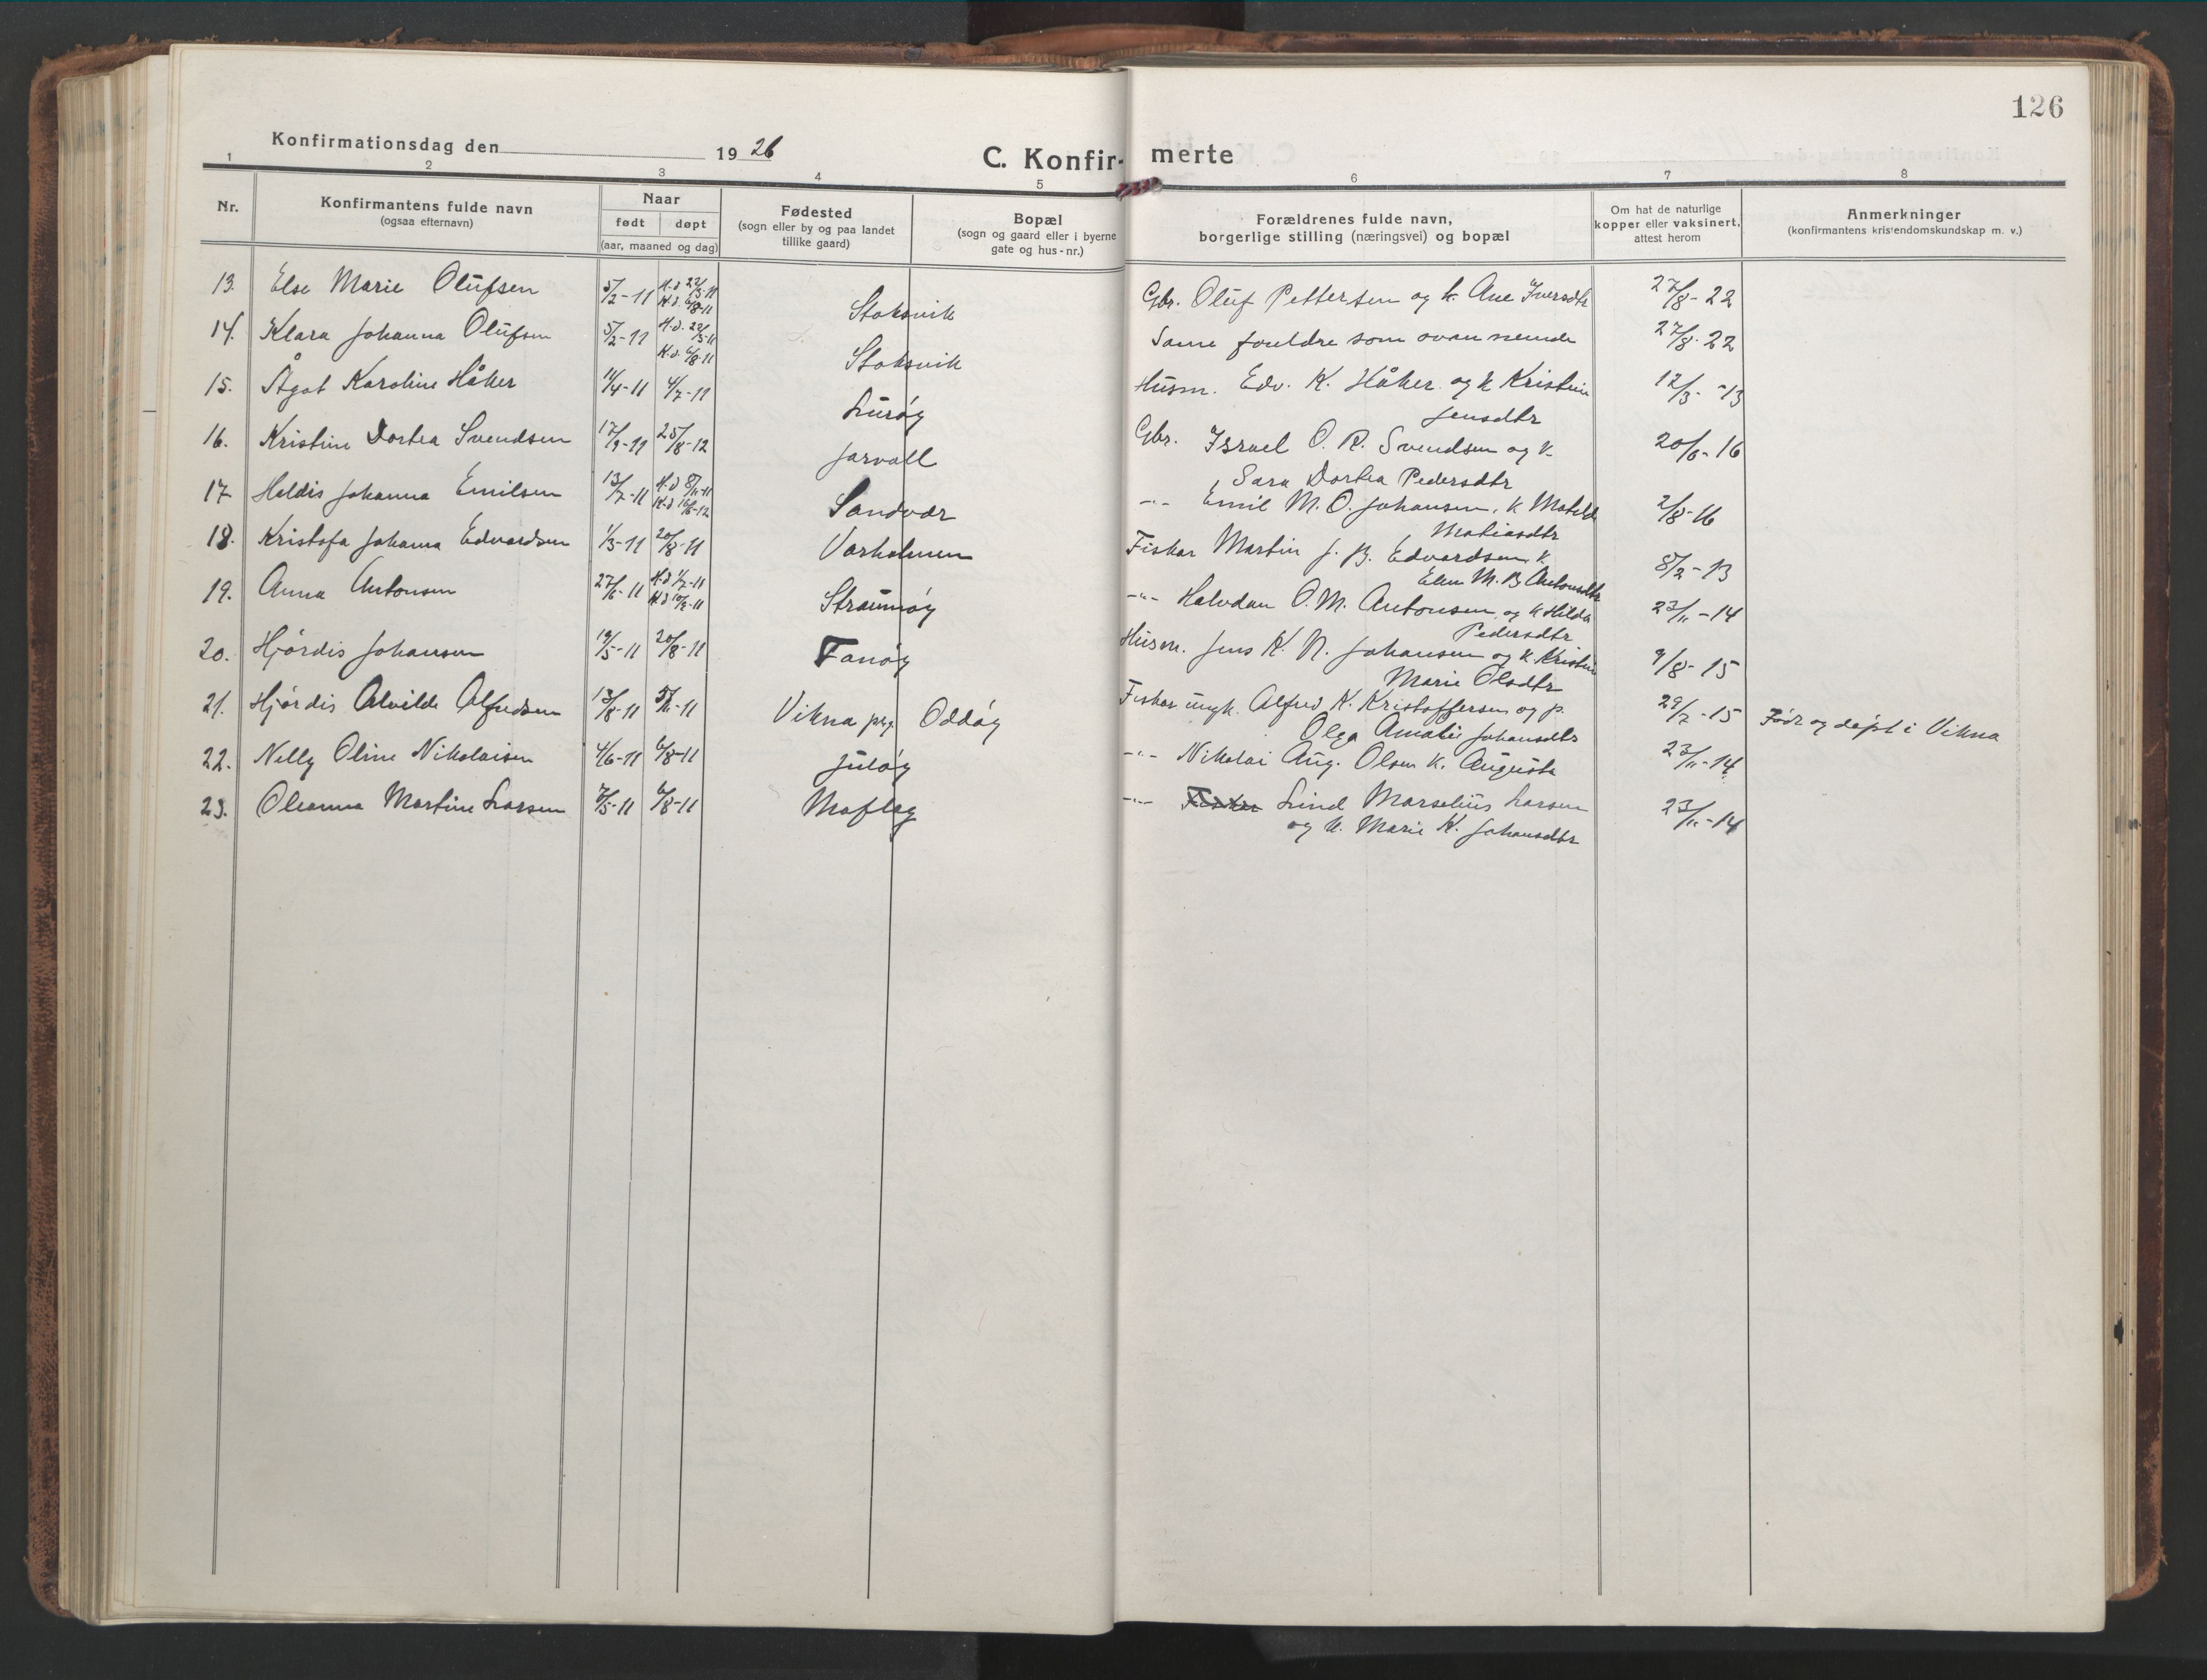 126
Konfirmationsdag den 19 26
C. Konfir- merte
1 2 3 4 5 6 7 8
Nr. Konfirmantens fulde navn (ogsaa efternavn) Naar født døpt (aar, maaned og dag) Fødested (sogn eller by og paa landet tillike gaard) Bopæl (sogn og gaard eller i byerne gate og hus-nr.) Forældrenes fulde navn, borgerlige stilling (næringsvei) og bopæl Om hat de naturlige kopper eller vaksinert, attest herom Anmerkninger (konfirmantens kristendomskundskap m. v.)
13. Else Marie Olufsen 5/2-11 H.d 22/3-11 Stoksvik Gbr. Oluf Pettersen og k. Ane Iversdtr 27/8-22
K.d. 6/8-11
14. Klara Johanna Olufsen 5/2-11 H.d. 22/3-11 Stoksvik Same foreldre som ovan nemde 27/8-22
K.d. 6/8-11
15. Ågot Karoline Håker 11/4-11 4/7-11 Lurøy Husm. Edv. K. Håker og k Kristine 12/3-13
Jensdtr
16. Kristine Dortea Svendsen 17/9-11 25/8-12 Jarvoll Gbr. Israel O. R. Svendsen og k. 20/6-16
Sara Dortea Pedersdtr
17 Haldis Johanna Emilsen 13/7-11 H.d 8/11-11 Sandvær -"- Emil M. O. Johansen, k Matilde 2/8-16
Matiasdtr
18. Kristofa Johanna Edvardsen 1/3-11 20/8-11 Varholmen Fiskar Martin J. B. Edvardsen k. 8/2-13
Elen M. B Antonsdtr
19. Anna Antonsen 27/6-11 H.d 1/7-11 Straumøy -"- Halvdan O. M. Antonsen og k Hilda 23/11-14
Pedersdtr
20. Hjørdis Johansen 19/5-11 20/8-11 Fanøy Husm. Jens K. N. Johansen og k. Kristine 9/8-15
Marie Olsdtr
21. Hjørdis Alvilde Alfredsen 13/8-11 5/11-11 Vikna pgj. Oddøy Fiskar ungk. Alfred K. Kristoffersen og p. 29/7-15 Född og døpt i Vikna
Olga Amalie Johansdtr
22. Nelly Oline Nikolaisen 4/6-11 6/8-11 Juløy -"- Nikolai Aug. Olsen k. Augusta 23/11-14
23. Oleanna Martine Larsen 7/5-11 6/8-11 Moflag -"- Lind Marselius Larsen 23/11-14
og k. Marie K. Johansdtr